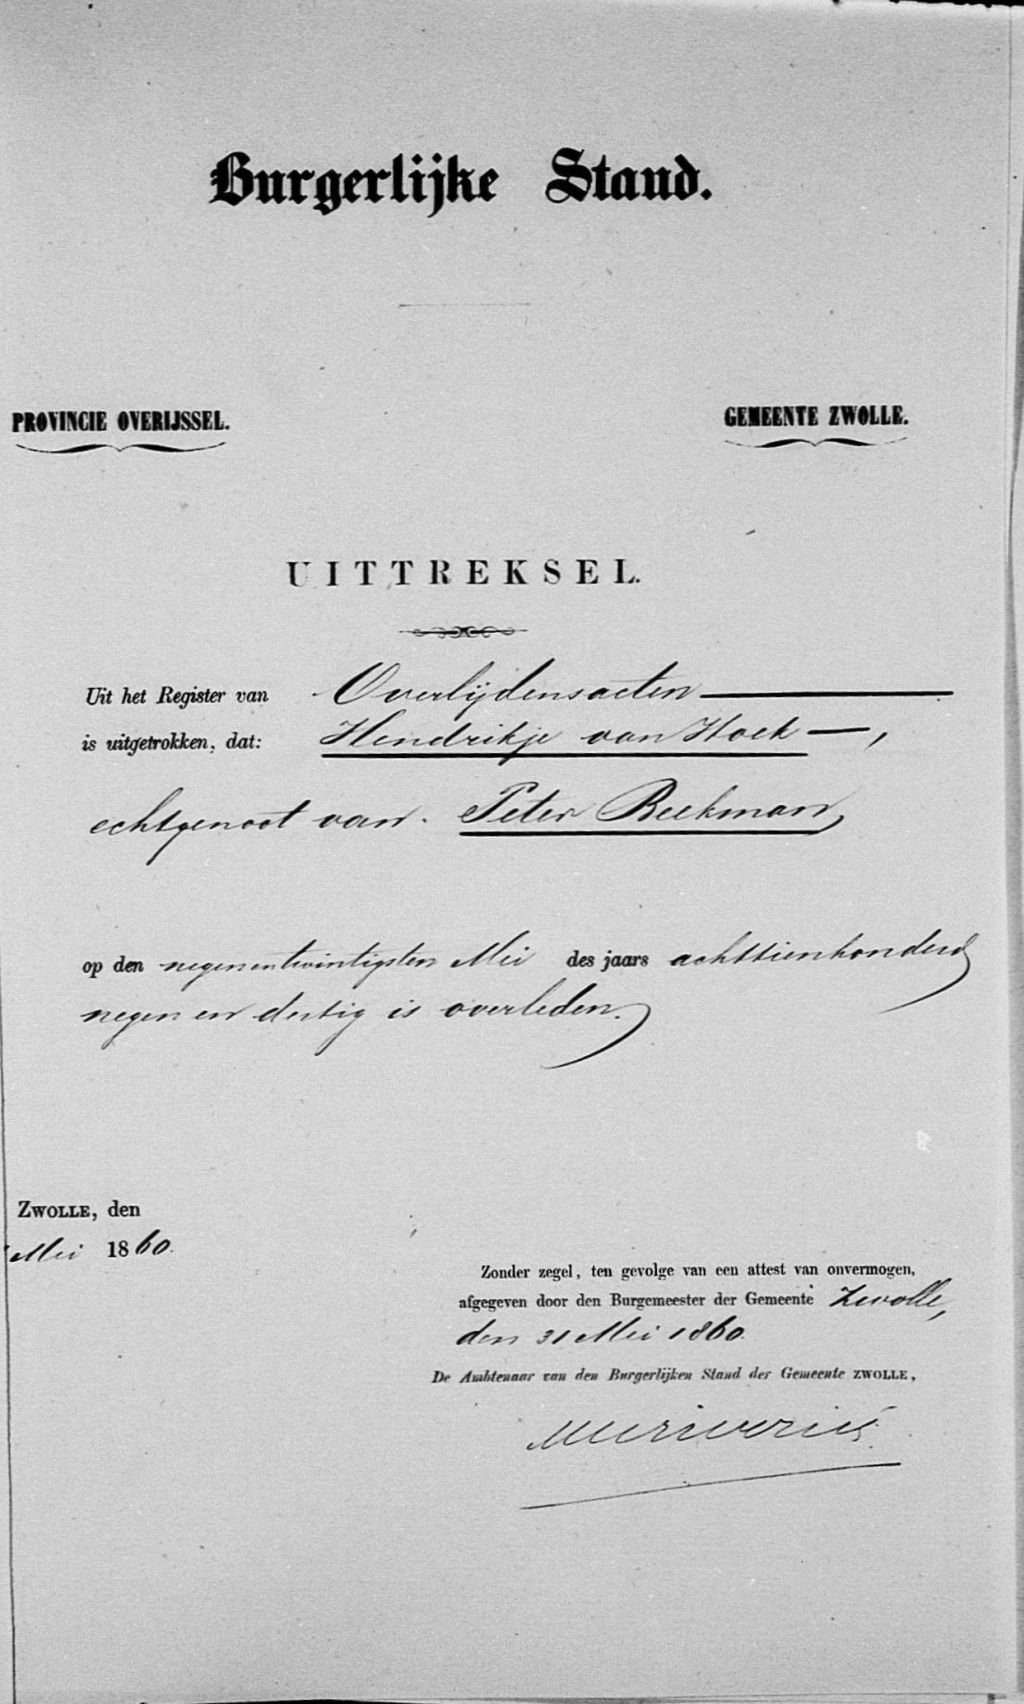 Burgerlijke Stand.
PROVINCIE OVERIJSSEL.
GEMEENTE ZWOLLE.
UITTREKSEL.
Uit het Register van Overlijdensacten
is uitgetrokken, dat: Hendrikje van Hoek,
echtgenoot van Peter Beekman,
op den negenentwintigsten Mei des jaars achttienhonderd
negen en dertig is overleden.
ZWOLLE, den
Mei 1860.
Zonder zegel, ten gevolge van een attest van onvermogen,
afgegeven door den Burgemeester der Gemeente Zwolle,
den 31 Mei 1860.
De Ambtenaar van den Burgerlijken Stand der Gemeente ZWOLLE,